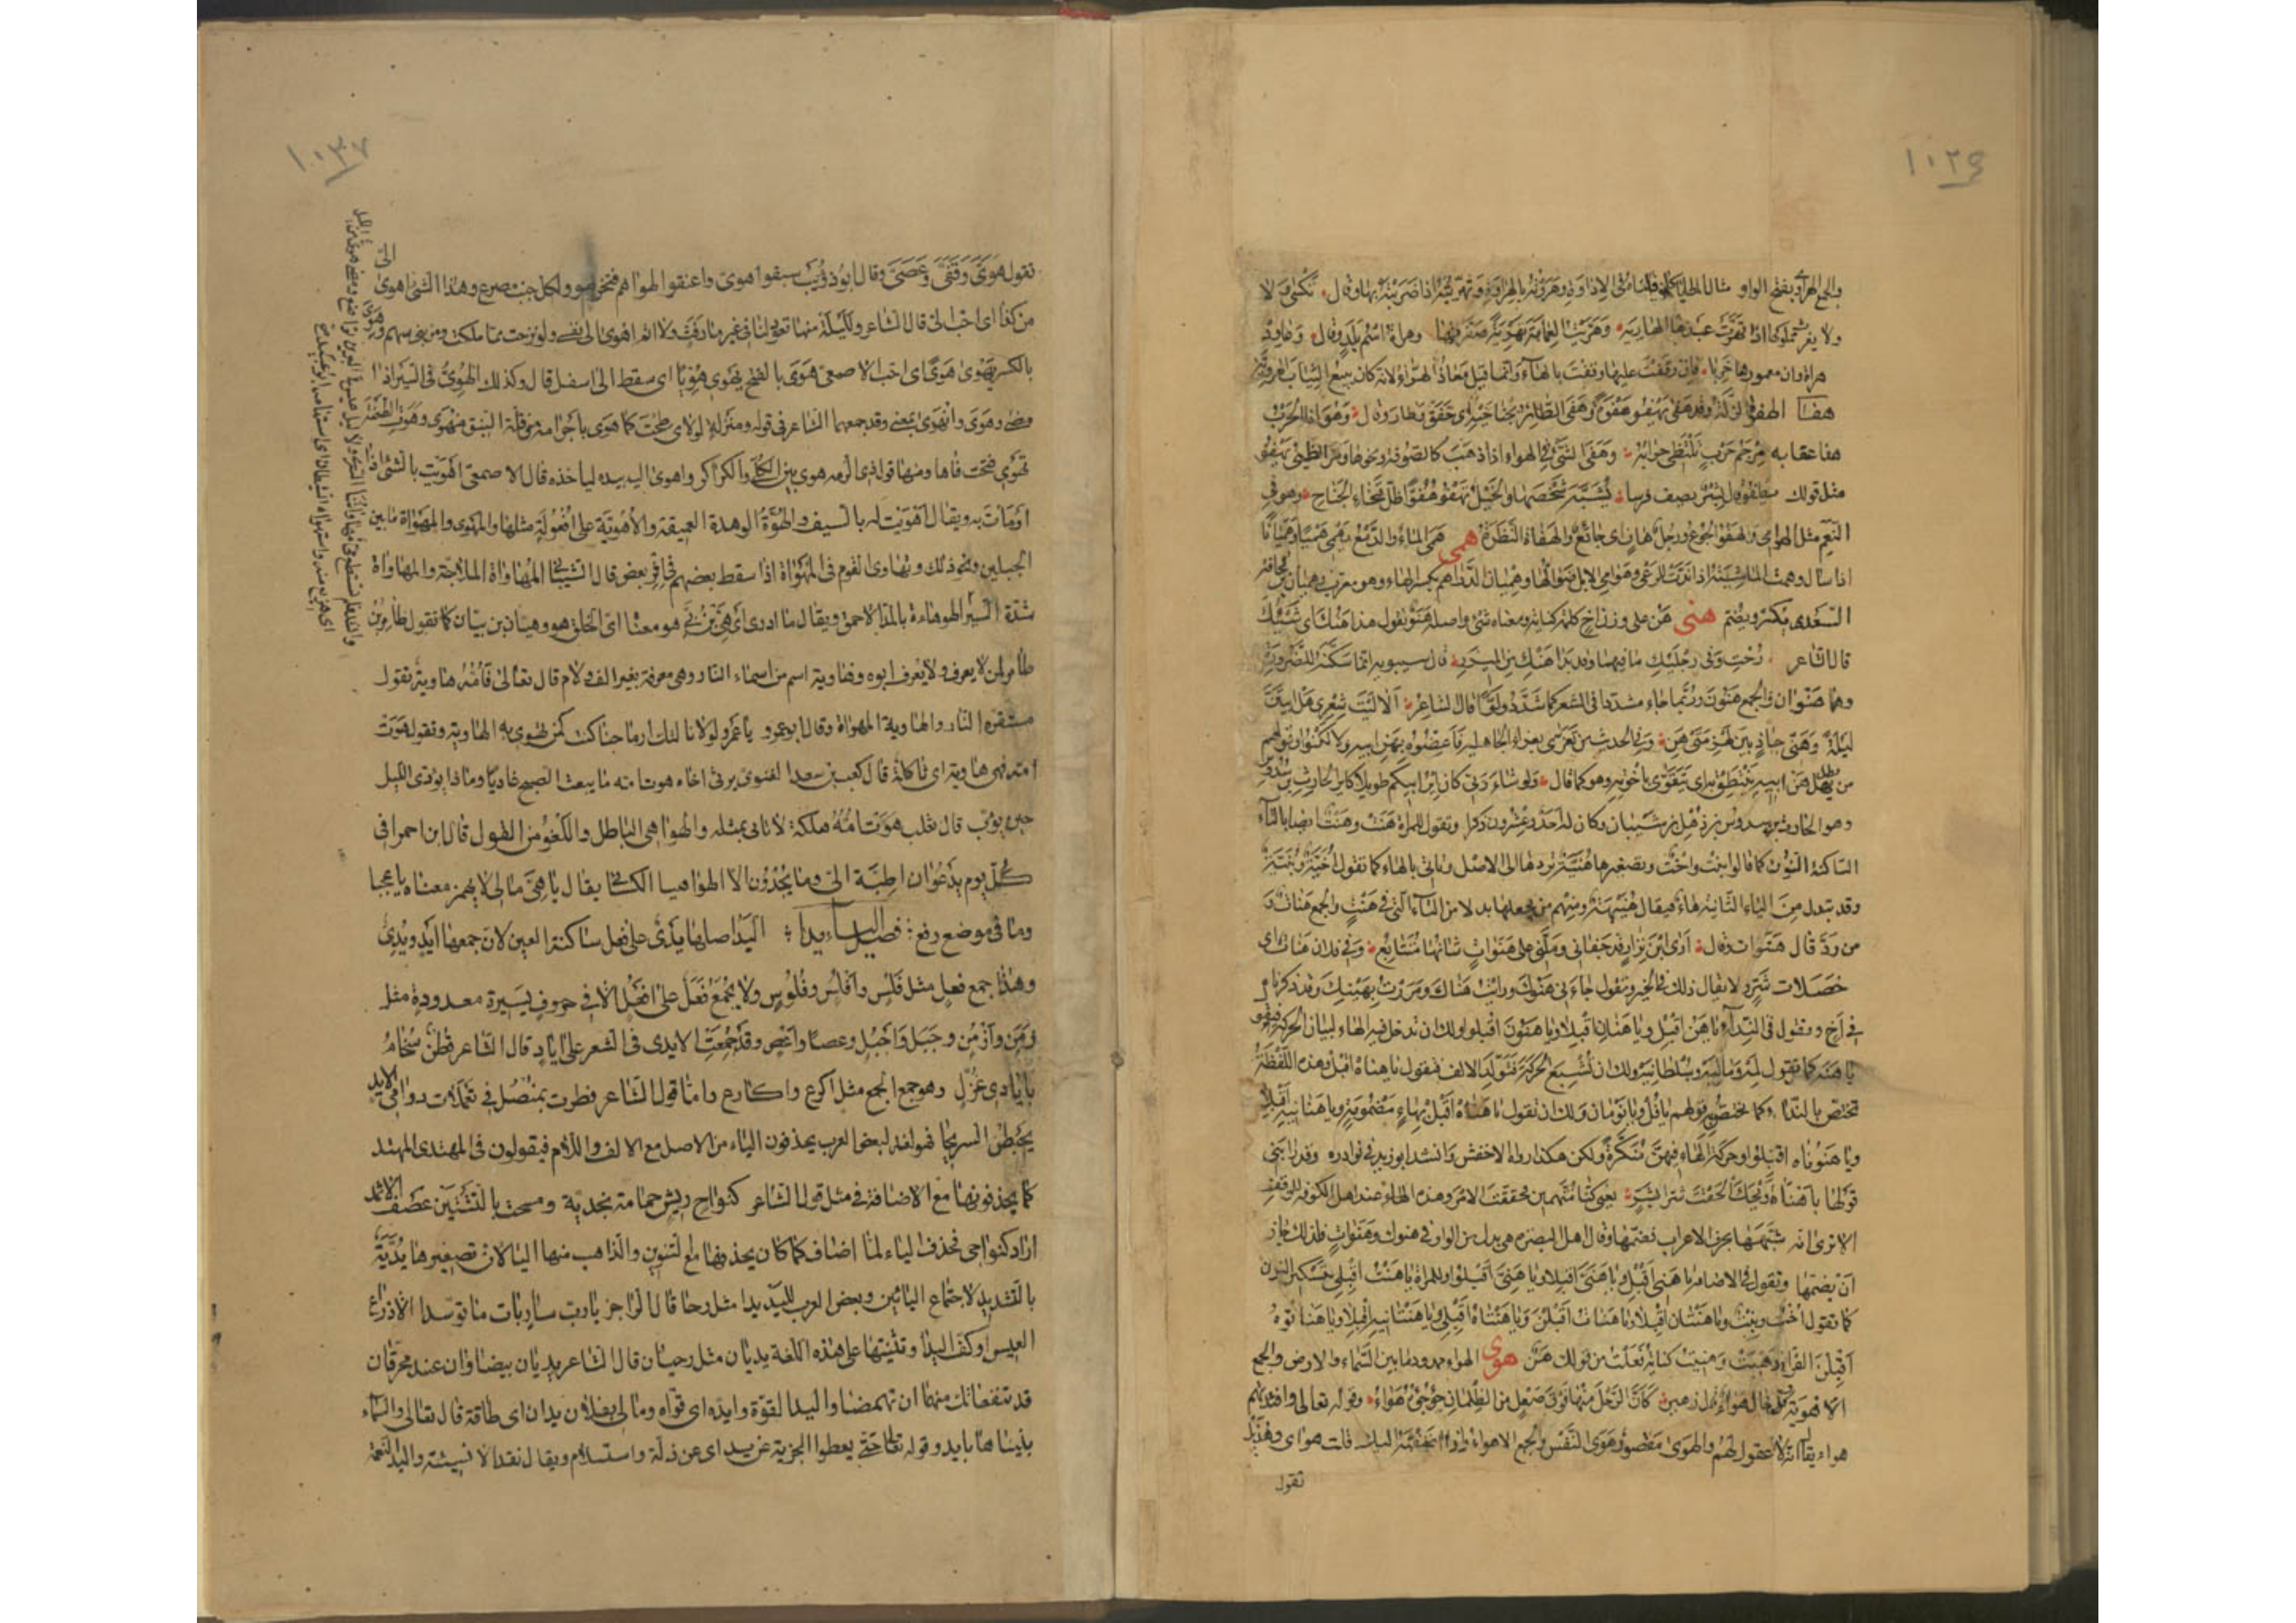 ١٠٣٦
والجمع الهراوى بفتح الواو مثال المطايا كما قلنا فى الاداوة وهروته بالهراوة وتهريته اذا ضربته بها وقال تكسى ولا
ولا يغرث مملوكها اذا تهرت عبدها الهاريه وهريت العمامة تهرية صفرتها وهراة اسم بلد وقال وعاود
هراة وان معمورها خربا فان وقفت عليها وقفت بالهاء وانما قيل معاذ الهراء لانه كان يبيع الثياب الهروية
هفا الهفوة الزلة وقد هفا يهفو هفوة وهفا الطائر بجناحيه اى خفق وطار وقال وهو اذا الحرب
هفا عقابه مرجم حرب تلتظى حرابه وهفا الشئ فى الهواء اذا ذهب كالصوفة ونحوها ومر الظبى يهفو
مثل قولك يطفو قال بشر يصف فرسا يشبه شخصها والخيل تهفو هفوا ظل فتخاء الجناح وهوافى
النعم مثل الهوامى والهفو الجوع ورجل هاف اى جائع والهفاة النظرة همى همى الماء والدمع يهمى هميا وهميانا
اذا سال وهمت الماشية اذا ندت للرعى وهوامى الابل ضوالها وهميان الدراهم بكسر الهاء وهو معرب وهميان بن قحافة
السعدى يكسر ويضم هنى هن على وزن اخ كلمة كناية ومعناه شئ واصله هنو يقول هذا هنك اى شيئك
قال الشاعر رحت وفى رجليك ما فيهما وقد بدا هنك من المئزر قال سيبويه انما سكنه للضرورة
وهما هنوان والجمع هنون وربما جاء مشددا فى الشعر كما شددوا لوا قال الشاعر الا ليت شعرى هل ابيتن
ليلة وهنى جاذ بين لهزمتى هن وفى الحديث من تعزى بعزاء الجاهلية فاعضوه بهن ابيه ولا تكنوا وقولهم
من يطل هن ابيه ينتطق به اى يتقوى باخوته وهو كما قال ولو شاء ربى كان اير ابيكم طويلا كاير الحارث بن سدوس
وهو الحارث بن سدوس بن ذهل بن شيبان وكان له احد وعشرون ذكرا وتقول للمراة هنت وهنت ايضا بالتاء
الساكنة النون كما قالوا بنت واخت وتصغيرها هنية تردها الى الاصل وتاتى بالهاء كما تقول اخية وبنية
وقد تبدل من الياء الثانية هاء فيقال هنيهة ومنهم من يجعلها بدلا من التاء التى فى هنت والجمع هنات و
من رد قال هنوات وقال ارى ابن نزار قد جفانى وملنى على هنوات شانها متتابع وفى فلان هنات اى
خصلات شر ولا يقال ذلك فى الخير وتقول جاءنى هنوك ورايت هناك ومررت بهنيك وقد ذكرناه
فى اخ وتقول فى النداء يا هن اقبل ويا هنان اقبلا ويا هنون اقبلوا ولك ان تدخل فيه الهاء لبيان الحركة فتقول
يا هنه كما تقول لمه وماليه وسلطانيه ولك ان تشبع الحركة فتتولد الالف فتقول يا هناه اقبل وهذه اللفظة
تختص بالنداء كما يختص به قولهم يا فل ويا نومان ولك ان تقول يا هناه اقبل بهاء مضمومة ويا هنانيه اقبلا
ويا هنوناه اقبلوا وحركة الهاء فيهن منكرة ولكن هكذا رواه الاخفش وانشد ابو زيد فى نوادره وقد رابنى
قولها يا هناه ويحك الحقت شرا بشر يعنى كنا متهمين فحققت الامر وهذه الهاء عند اهل الكوفة للوقف
الا ترى انه شبهها بحرف الاعراب فضمها وقال اهل البصرة هى بدل من الواو فى هنوك وهنوات فلذلك جاز
ان يضمها وتقول فى الاضافة يا هنى اقبل ويا هنى اقبلا ويا هنى اقبلوا وللمراة يا هنت اقبلى بتسكين النون
كما تقول اخت وبنت ويا هنتان اقبلا ويا هنات اقبلن ويا هنتاه اقبلى ويا هنتانيه اقبلا ويا هناتوه
اقبلن الفراء ذهبت وهنيت كناية فعلت من قولك هن هوى الهواء ممدود ما بين السماء والارض والجمع
الاهوية وكل خال هواء قال زهير كان الرحل منها فوق صعل من الظلمان جؤجؤه هواء وقوله تعالى وافئدتهم
هواء يقال انه لا عقول لهم والهوى مقصور هوى النفس والجمع الاهواء واذا اضفته اليك قلت هواى وهذيل
تقول
١٠٣٧
تقول هوى وقفى وعصى وقال ابو ذؤيب سبقوا هوى واعنقوا لهواهم فتخرموا ولكل جنب مصرع وهذا الشئ اهوى الى
من كذا اى احب الى قال الشاعر ولليلة منها تعود لنا فى غير ما رفث ولا اثم اهوى الى نفسى ولو نزحت مما ملكت ومن بنى سهم وهوى
بالكسر يهوى هوى اى احب الاصمعى هوى بالفتح يهوى هويا اى سقط الى اسفل قال وكذلك الهوى فى السير اذا
مضى وهوى وانهوى بمعنى وقد جمعهما الشاعر فى قوله ومنزلة لولاى طحت كما هوى باجرامه من قلة النيق منهوى وهوت الطعنة
تهوى فتحت فاها ومنها قول ذى الرمة هوى بين الكلى والكراكر واهوى اليه بيده لياخذه قال الاصمعى اهويت بالشئ اذا
اومات به ويقال اهويت له بالسيف والهوة الوهدة العميقة والاهوية على افعولة مثلها والمهوى والمهواة ما بين
الجبلين ونحو ذلك وتهاوى القوم فى المهواة اذا سقط بعضهم فى اثر بعض قال الشيبانى المهاواة الملاجة والمهاواة
شدة السير الهوهاءة بالمد الاحمق ويقال ما ادرى اى هى بن بى هو معناه اى الخلق هو وهيان بن بيان كما تقول طامر بن
طامر لمن لا يعرف ولا يعرف ابوه وهاوية اسم من اسماء النار وهى معرفة بغير الف ولام قال تعالى فامه هاوية تقول
مستقره النار والهاوية المهواة وقال ابو عمرو يا عمرو لو لا نالتك ارماحنا كنت كمن تهوى به الهاوية وتقول هوت
امه فهى هاوية اى ثاكلة قال كعب بن سعد الغنوى يرثى اخاه هوت امه ما يبعث الصبح غاديا وماذا يودى الليل
حين يؤب قال ثعلب هوت امه هلكة لا تاتى بمثله والهواهى الباطل واللغو من القول قال ابن احمر افى
كل يوم يدعوان اطبة الى وما يجدون الا الهواهيا الكسائى يقال يا هى مالى لا يهمز معناه يا عجبا
وما فى موضع رفع فصل الياء يدا اليد اصلها يدى على فعل ساكنة العين لان جمعها ايد ويدى
وهذا جمع فعل مثل فلس وافلس وفلوس ولا يجمع فعل على افعل الا فى حروف يسيرة معدودة مثل
زمن وازمن وجبل واجبل وعصا واعص وقد جمعت الايدى فى الشعر على اياد قال الشاعر قطن سخام
بايادى غزل وهو جمع الجمع مثل اكرع واكارع واما قول الشاعر فطرت بمنصلى فى يعملات دوامى الايد
يخبطن السريحا فهو لغة لبعض العرب يحذفون الياء من الاصل مع الالف واللام فيقولون فى المهتدى المهتد
كما يحذفونها مع الاضافة فى مثل قول الشاعر كنواح ريش حمامة نجدية ومسحت باللثتين عصف الاثمد
اراد كنواحى فحذف الياء لما اضاف كما كان يحذفها مع التنوين والذاهب منها الياء لان تصغيرها يدية
بالتشديد لاجتماع اليائين وبعض العرب لليد يدا مثل رحا قال الراجز يا رب سار بات ما توسدا الا ذراع
العيس او كف اليدا وتثنيتها على هذه اللغة يديان مثل رحيان قال الشاعر يديان بيضاوان عند محرقان
قد تنفعانك منهما ان تهضما واليد القوة وايده اى قواه ومالى بفلان يدان اى طاقة قال تعالى والسماء
بنيناها بايد وقوله تعالى حتى يعطوا الجزية عن يد اى عن ذلة واستسلام ويقال نقدا لا نسيئة واليد النعمة